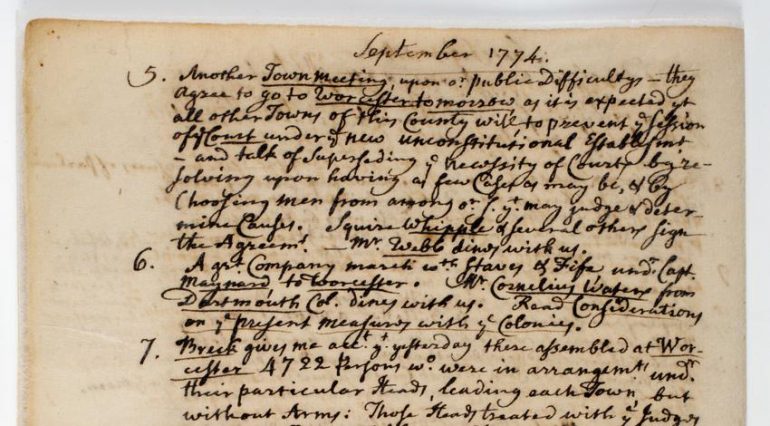 September 1774.
5. Another Town meeting, upon or. public Difficultys — they
agree to go to Worcester tomorrow as it is expected yt
all other Towns of this County will to prevent ye session
of ye Court under ye new unconstitutional Establishmt
— and talk of Superseding ye necessity of Courts by re-
solving upon having as few Cases as may be, & by
Choosing men from among or. S. yt. may judge & deter-
mine Causes. Squire Whipple & several others sign
the Agreemt. — Mr. Webb dines with us.
6. A grt. Company march wth. Staves & Fife undr. Capt.
Maynard, to Worcester. Mr. Cornelius Waters from
Dartmouth Col. dines with us. Read Considerations
on ye present measures with ye Colonies.
7. Breck gives me acct. yt. yesterday there assembled at Wor-
cester 4722 Persons wo. were in arrangemts undr.
their particular Heads, leading each Town, but
without Arms: Those Heads treated with ye Judges